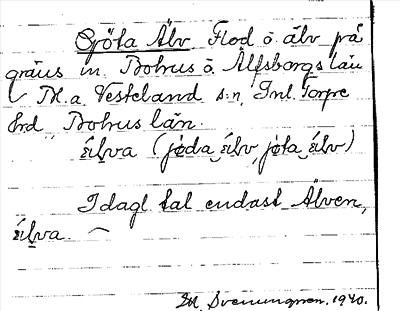 Göta Älv Flod o. älv på
gräns m. Bohus o. Älfsborgs län
Bl.a. Västerland s:n, Inl. Torpe
hrd, Bohus län.
ęlva (jøda ęlv, jøta ęlv)
I dagl tal endast Älven,
ęlva
M. Svenungsson. 1940.